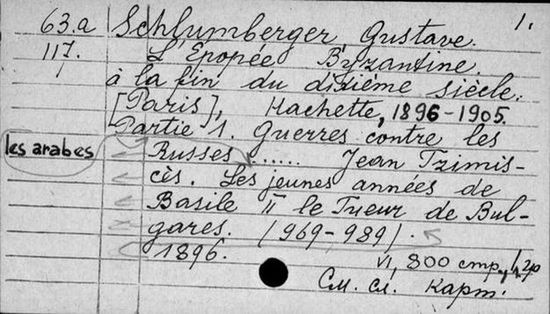 63.a Schlumberger Gustave. 1.
117. L'Epopée Byzantine.
à la fin du dixième siècle.
[Paris], Hachette, 1896-1905.
Partie 1. Guerres contre les
les arabes
Russes ...... Jean Tzimis-
cès. Les jeunes années de
Basile II le Tueur de Bul-
gares. (969-989).
1896.
VI, 800 стр.,
См. сл. карт.